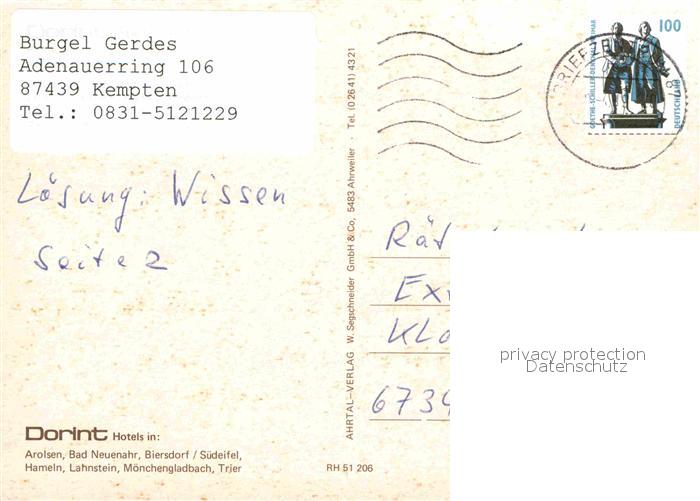 Burgel Gerdes
Adenauerring 106
87439 Kempten
Tel.: 0831-5121229
Lösung: Wissen
Seite 2
Dorint Hotels in:
Arolsen, Bad Neuenahr, Biersdorf / Südeifel,
Hameln, Lahnstein, Mönchengladbach, Trier
AHRTAL-VERLAG W. Segschneider GmbH & Co, 5483 Ahrweiler · Tel. (0 26 41) 43 21
RH 51 206
100
GOETHE-SCHILLER-DENKMAL WEIMAR
DEUTSCHLAND
BRIEFZE
Rät
Ex
Kl
6734
privacy protection
Datenschutz